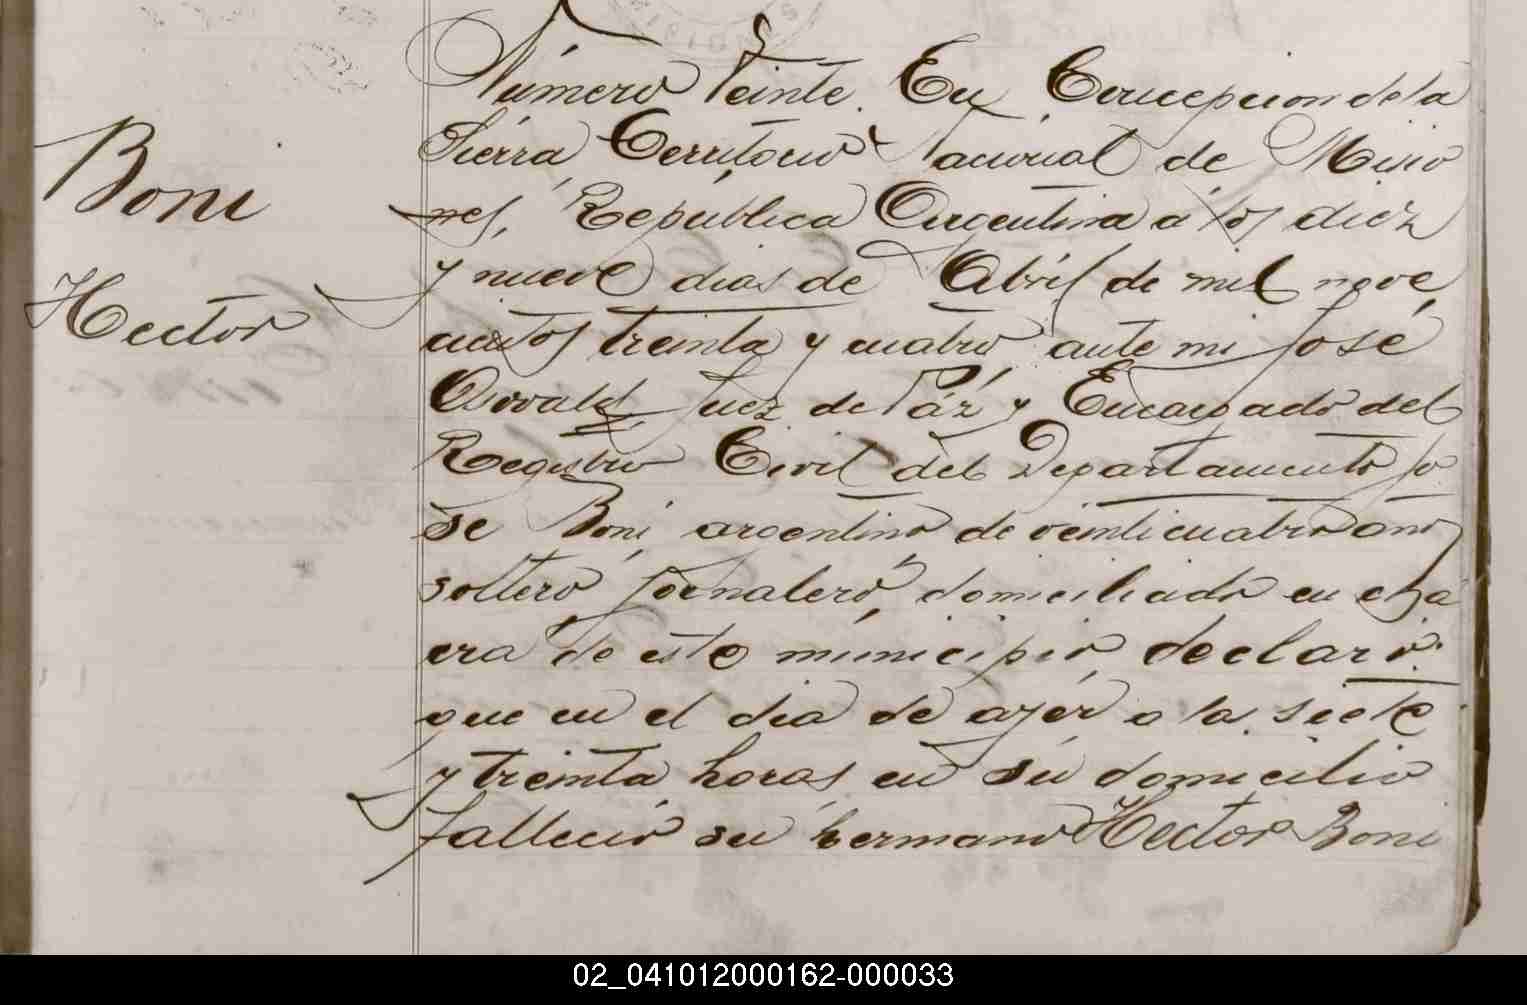 Número Veinte. En Concepcion de la
Boni
Sierra, Territorio Nacional de Misio
nes, República Argentina a los diez
Hector
y nueve dias de Abril de mil nove
cientos treinta y cuatro ante mi José
Osvald, Juez de Páz y Encargado del
Registro Civil del Departamento Jo
se Boni argentino de veinticuatro años
soltero jornalero, domiciliado en chá
cra de este município declaró:
que en el dia de ayér a las siete
y treinta horas en su domicilio
fallecio su hermano Hector Boni
02_041012000162-000033